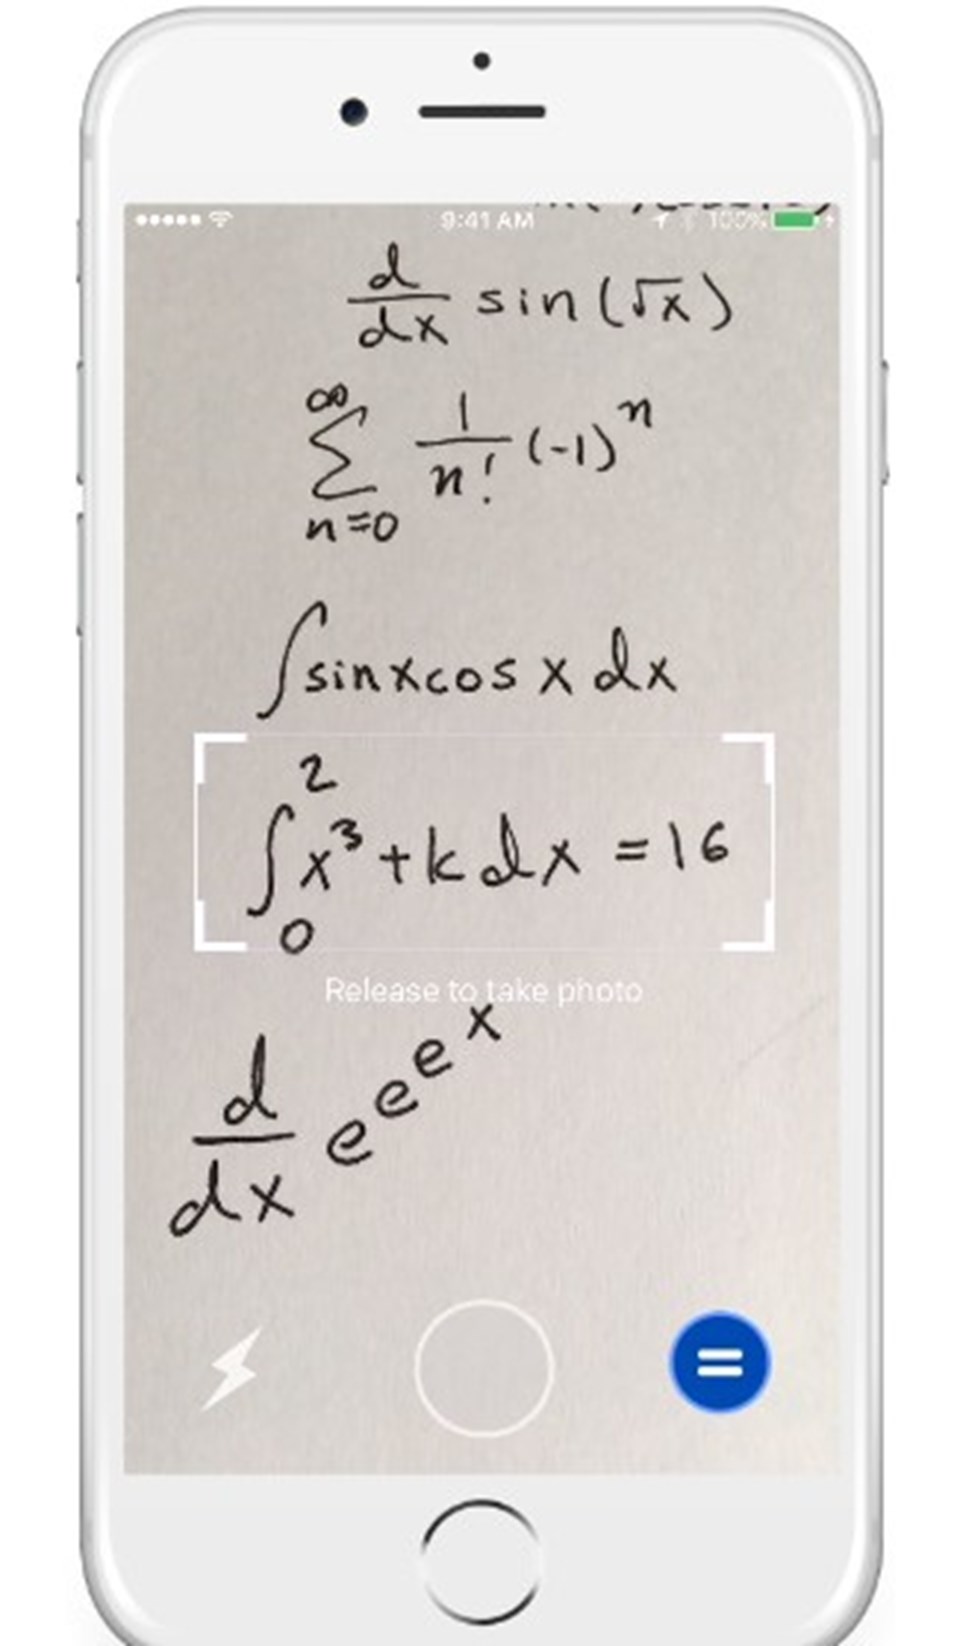 9:41 AM 100%
d/dx sin(√x)
∞
∑ 1/n! (-1)ⁿ
n=0
∫sinxcos x dx
2
∫x³+k dx =16
0
Release to take photo
d/dx e^e^e^x
=